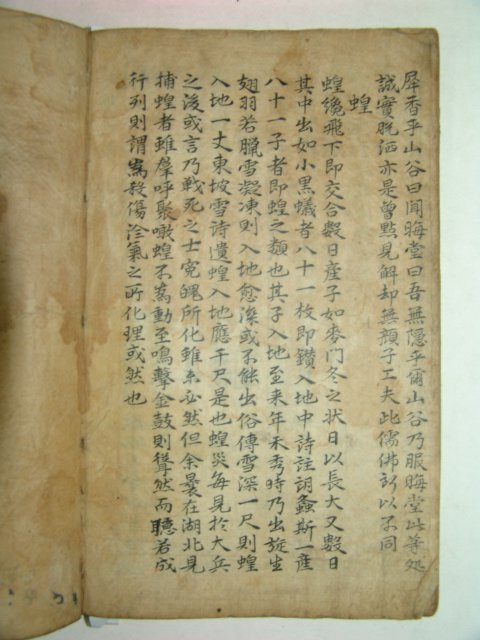 犀香乎山谷曰聞晦堂曰吾無隱乎爾山谷乃服晦堂此等処
誠實脫洒亦是曾點見解却無顔子工夫此儒佛所以不同
蝗
蝗纔飛下即交合數日産子如麥門冬之状日以長大又數日
其中出如小黑蟻者八十一枚即鑚入地中詩註謂螽斯一産
八十一子者即蝗之類也其子入地至来年禾秀時乃出旋生
翅羽若臘雪凝凍則入地愈深或不能出俗傳雪深一尺則蝗
入地一丈東坡雪詩遺蝗入地應千尺是也蝗災每見於大兵
之後或言乃戰死之士寃魄所化雖未必然但余曩在湖北見
捕蝗者雖羣呼聚噉蝗不爲動至鳴擊金鼓則聳然而聽若成
行列則謂爲殺傷沴氣之所化理或然也